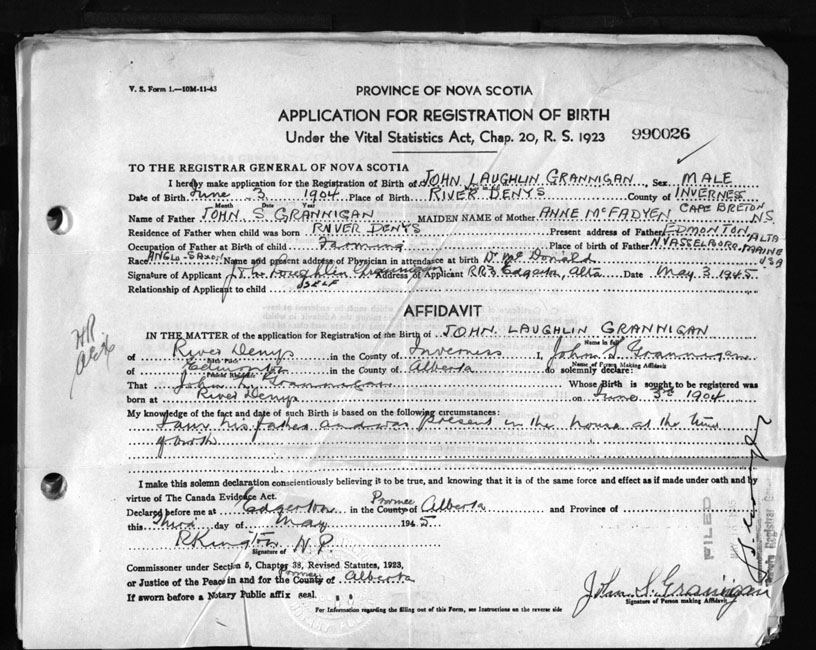 V. S. Form 1.—10M-11-43
PROVINCE OF NOVA SCOTIA
APPLICATION FOR REGISTRATION OF BIRTH
Under the Vital Statistics Act, Chap. 20, R. S. 1923 990026
TO THE REGISTRAR GENERAL OF NOVA SCOTIA
I hereby make application for the Registration of Birth of JOHN LAUGHLIN GRANNIGAN, Sex MALE
Date of Birth June 3 1904 Place of Birth RIVER DENYS County of INVERNESS
Month Date Year
CAPE BRETON
Name of Father JOHN S. GRANNIGAN MAIDEN NAME of Mother ANNE McFADYEN N.S.
Residence of Father when child was born RIVER DENYS Present address of Father EDMONTON, ALTA
Occupation of Father at Birth of child Farming Place of birth of Father N. VASSELBORO, MAINE
USA
Race ANGLO-SAXON Name and present address of Physician in attendance at birth Dr McDonald
Signature of Applicant Address of Applicant RR3 Edgerton, Alta Date May 3 1945
Relationship of Applicant to child SELF
AFFIDAVIT
IN THE MATTER of the application for registration of Birth of JOHN LAUGHLIN GRANNIGAN
Name in full
of River Denys in the County of Inverness I, John S. Grannigan
Birth Place Name of Person Making Affidavit
of Edmonton in the County of Alberta do solemnly declare:
Present Residence
That John L. Grannigan Whose Birth is sought to be registered was
born at River Denys on June 3rd 1904
My knowledge of the fact and date of such Birth is based on the following circumstances:
I am his father and was present in the house at the time
of birth
I make this solemn declaration conscientiously believing it to be true, and knowing that it is of the same force and effect as if made under oath and by
virtue of The Canada Evidence Act.
Province
Declared before me at Edgerton in the County of Alberta and Province of
this third day of May 1945
N.P.
Signature of
Commissioner under Section 5, Chapter 38, Revised Statutes, 1923,
Province
or Justice of the Peace in and for the County of Alberta
If sworn before a Notary Public affix seal.
John S. Grannigan
Signature of Person making Affidavit
For Information regarding the filling out of this Form, see Instructions on the reverse side
FILED